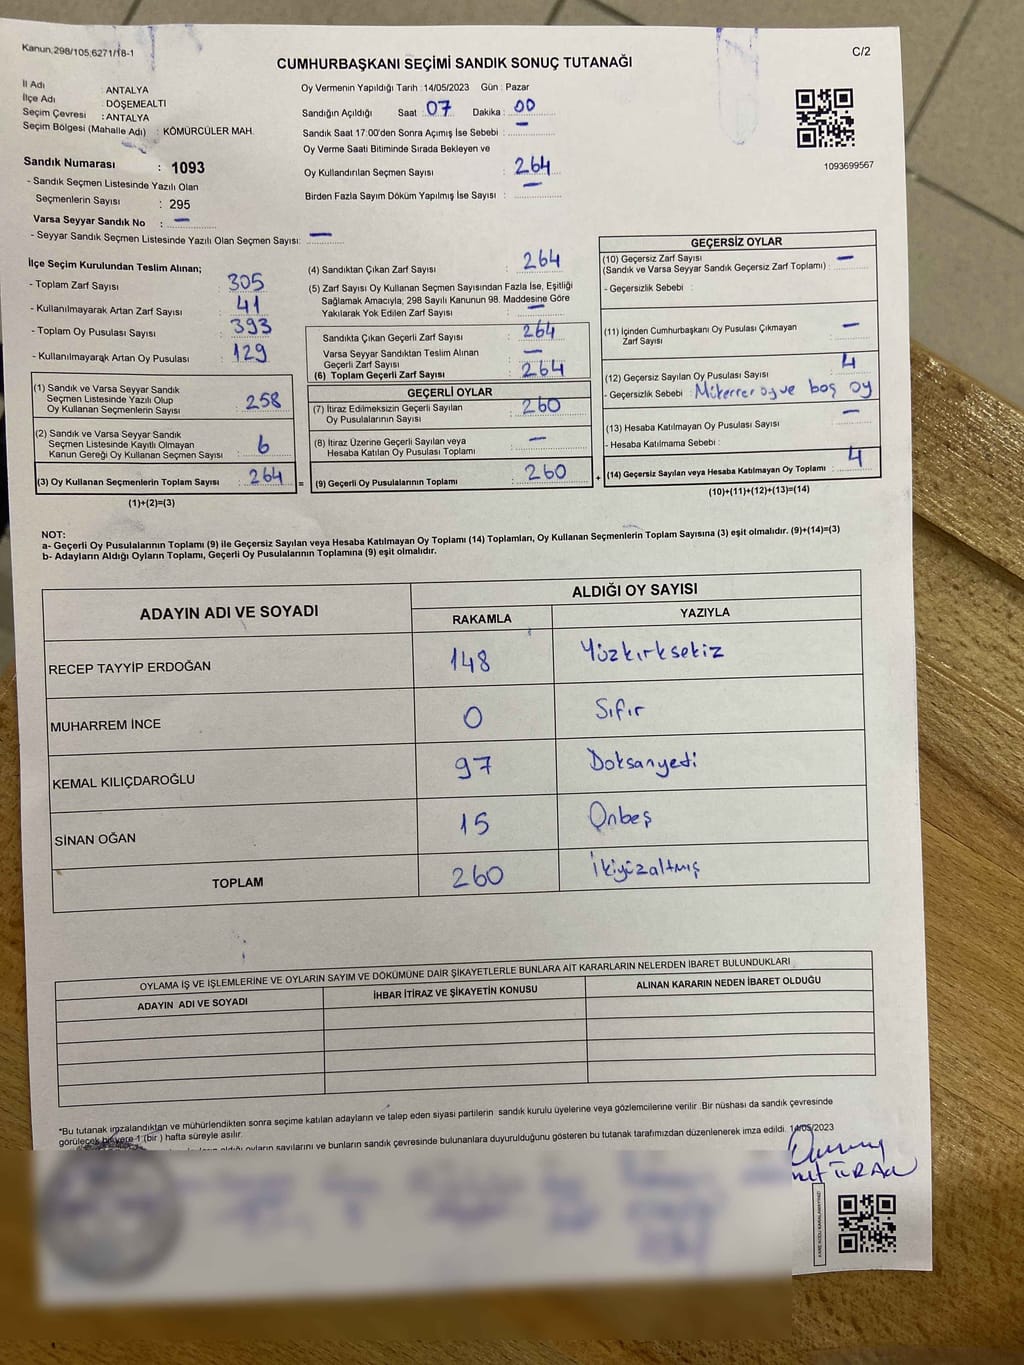 Kanun,298/105,6271/18-1
C/2
CUMHURBAŞKANI SEÇİMİ SANDIK SONUÇ TUTANAĞI
İl Adı : ANTALYA
İlçe Adı : DÖŞEMEALTI
Seçim Çevresi : ANTALYA
Seçim Bölgesi (Mahalle Adı) : KÖMÜRCÜLER MAH.
Sandık Numarası : 1093
- Sandık Seçmen Listesinde Yazılı Olan
Seçmenlerin Sayısı : 295
Varsa Seyyar Sandık No : —
- Seyyar Sandık Seçmen Listesinde Yazılı Olan Seçmen Sayısı: —
Oy Vermenin Yapıldığı Tarih : 14/05/2023 Gün : Pazar
Sandığın Açıldığı Saat : 07 Dakika : 00
Sandık Saat 17:00'den Sonra Açımış İse Sebebi : —
Oy Verme Saati Bitiminde Sırada Bekleyen ve
Oy Kullandırılan Seçmen Sayısı : 264
Birden Fazla Sayım Döküm Yapılmış İse Sayısı : —
1093699567
İlçe Seçim Kurulundan Teslim Alınan;
- Toplam Zarf Sayısı : 305
- Kullanılmayarak Artan Zarf Sayısı : 41
- Toplam Oy Pusulası Sayısı : 393
- Kullanılmayarak Artan Oy Pusulası : 129
(1) Sandık ve Varsa Seyyar Sandık
Seçmen Listesinde Yazılı Olup
Oy Kullanan Seçmenlerin Sayısı : 258
(2) Sandık ve Varsa Seyyar Sandık
Seçmen Listesinde Kayıtlı Olmayan
Kanun Gereği Oy Kullanan Seçmen Sayısı : 6
(3) Oy Kullanan Seçmenlerin Toplam Sayısı : 264
(1)+(2)=(3)
(4) Sandıktan Çıkan Zarf Sayısı : 264
(5) Zarf Sayısı Oy Kullanan Seçmen Sayısından Fazla İse, Eşitliği
Sağlamak Amacıyla, 298 Sayılı Kanunun 98. Maddesine Göre
Yakılarak Yok Edilen Zarf Sayısı : —
Sandıkta Çıkan Geçerli Zarf Sayısı : 264
Varsa Seyyar Sandıktan Teslim Alınan
Geçerli Zarf Sayısı : —
(6) Toplam Geçerli Zarf Sayısı : 264
GEÇERLİ OYLAR
(7) İtiraz Edilmeksizin Geçerli Sayılan
Oy Pusulalarının Sayısı : 260
(8) İtiraz Üzerine Geçerli Sayılan veya
Hesaba Katılan Oy Pusulası Toplamı : —
= (9) Geçerli Oy Pusulalarının Toplamı : 260
GEÇERSİZ OYLAR
(10) Geçersiz Zarf Sayısı
(Sandık ve Varsa Seyyar Sandık Geçersiz Zarf Toplamı) : —
- Geçersizlik Sebebi :
(11) İçinden Cumhurbaşkanı Oy Pusulası Çıkmayan
Zarf Sayısı : —
(12) Geçersiz Sayılan Oy Pusulası Sayısı : 4
- Geçersizlik Sebebi : Mükerrer oy ve boş oy
(13) Hesaba Katılmayan Oy Pusulası Sayısı : —
- Hesaba Katılmama Sebebi :
+ (14) Geçersiz Sayılan veya Hesaba Katılmayan Oy Toplamı : 4
(10)+(11)+(12)+(13)=(14)
NOT:
a- Geçerli Oy Pusulalarının Toplamı (9) ile Geçersiz Sayılan veya Hesaba Katılmayan Oy Toplamı (14) Toplamları, Oy Kullanan Seçmenlerin Toplam Sayısına (3) eşit olmalıdır. (9)+(14)=(3)
b- Adayların Aldığı Oyların Toplamı, Geçerli Oy Pusulalarının Toplamına (9) eşit olmalıdır.
ADAYIN ADI VE SOYADI
ALDIĞI OY SAYISI
RAKAMLA YAZIYLA
RECEP TAYYİP ERDOĞAN 148 Yüzkırksekiz
MUHARREM İNCE 0 Sıfır
KEMAL KILIÇDAROĞLU 97 Doksanyedi
SİNAN OĞAN 15 Onbeş
TOPLAM 260 İkiyüzaltmış
OYLAMA İŞ VE İŞLEMLERİNE VE OYLARIN SAYIM VE DÖKÜMÜNE DAİR ŞİKAYETLERLE BUNLARA AİT KARARLARIN NELERDEN İBARET BULUNDUKLARI
ADAYIN ADI VE SOYADI İHBAR İTİRAZ VE ŞİKAYETİN KONUSU ALINAN KARARIN NEDEN İBARET OLDUĞU
*Bu tutanak imzalandıktan ve mühürlendikten sonra seçime katılan adayların ve talep eden siyasi partilerin sandık kurulu üyelerine veya gözlemcilerine verilir .Bir nüshası da sandık çevresinde
görülecek bir yere 1 (bir ) hafta süreyle asılır.
aldığı oyların sayılarını ve bunların sandık çevresinde bulunanlara duyurulduğunu gösteren bu tutanak tarafımızdan düzenlenerek imza edildi. 14/05/2023